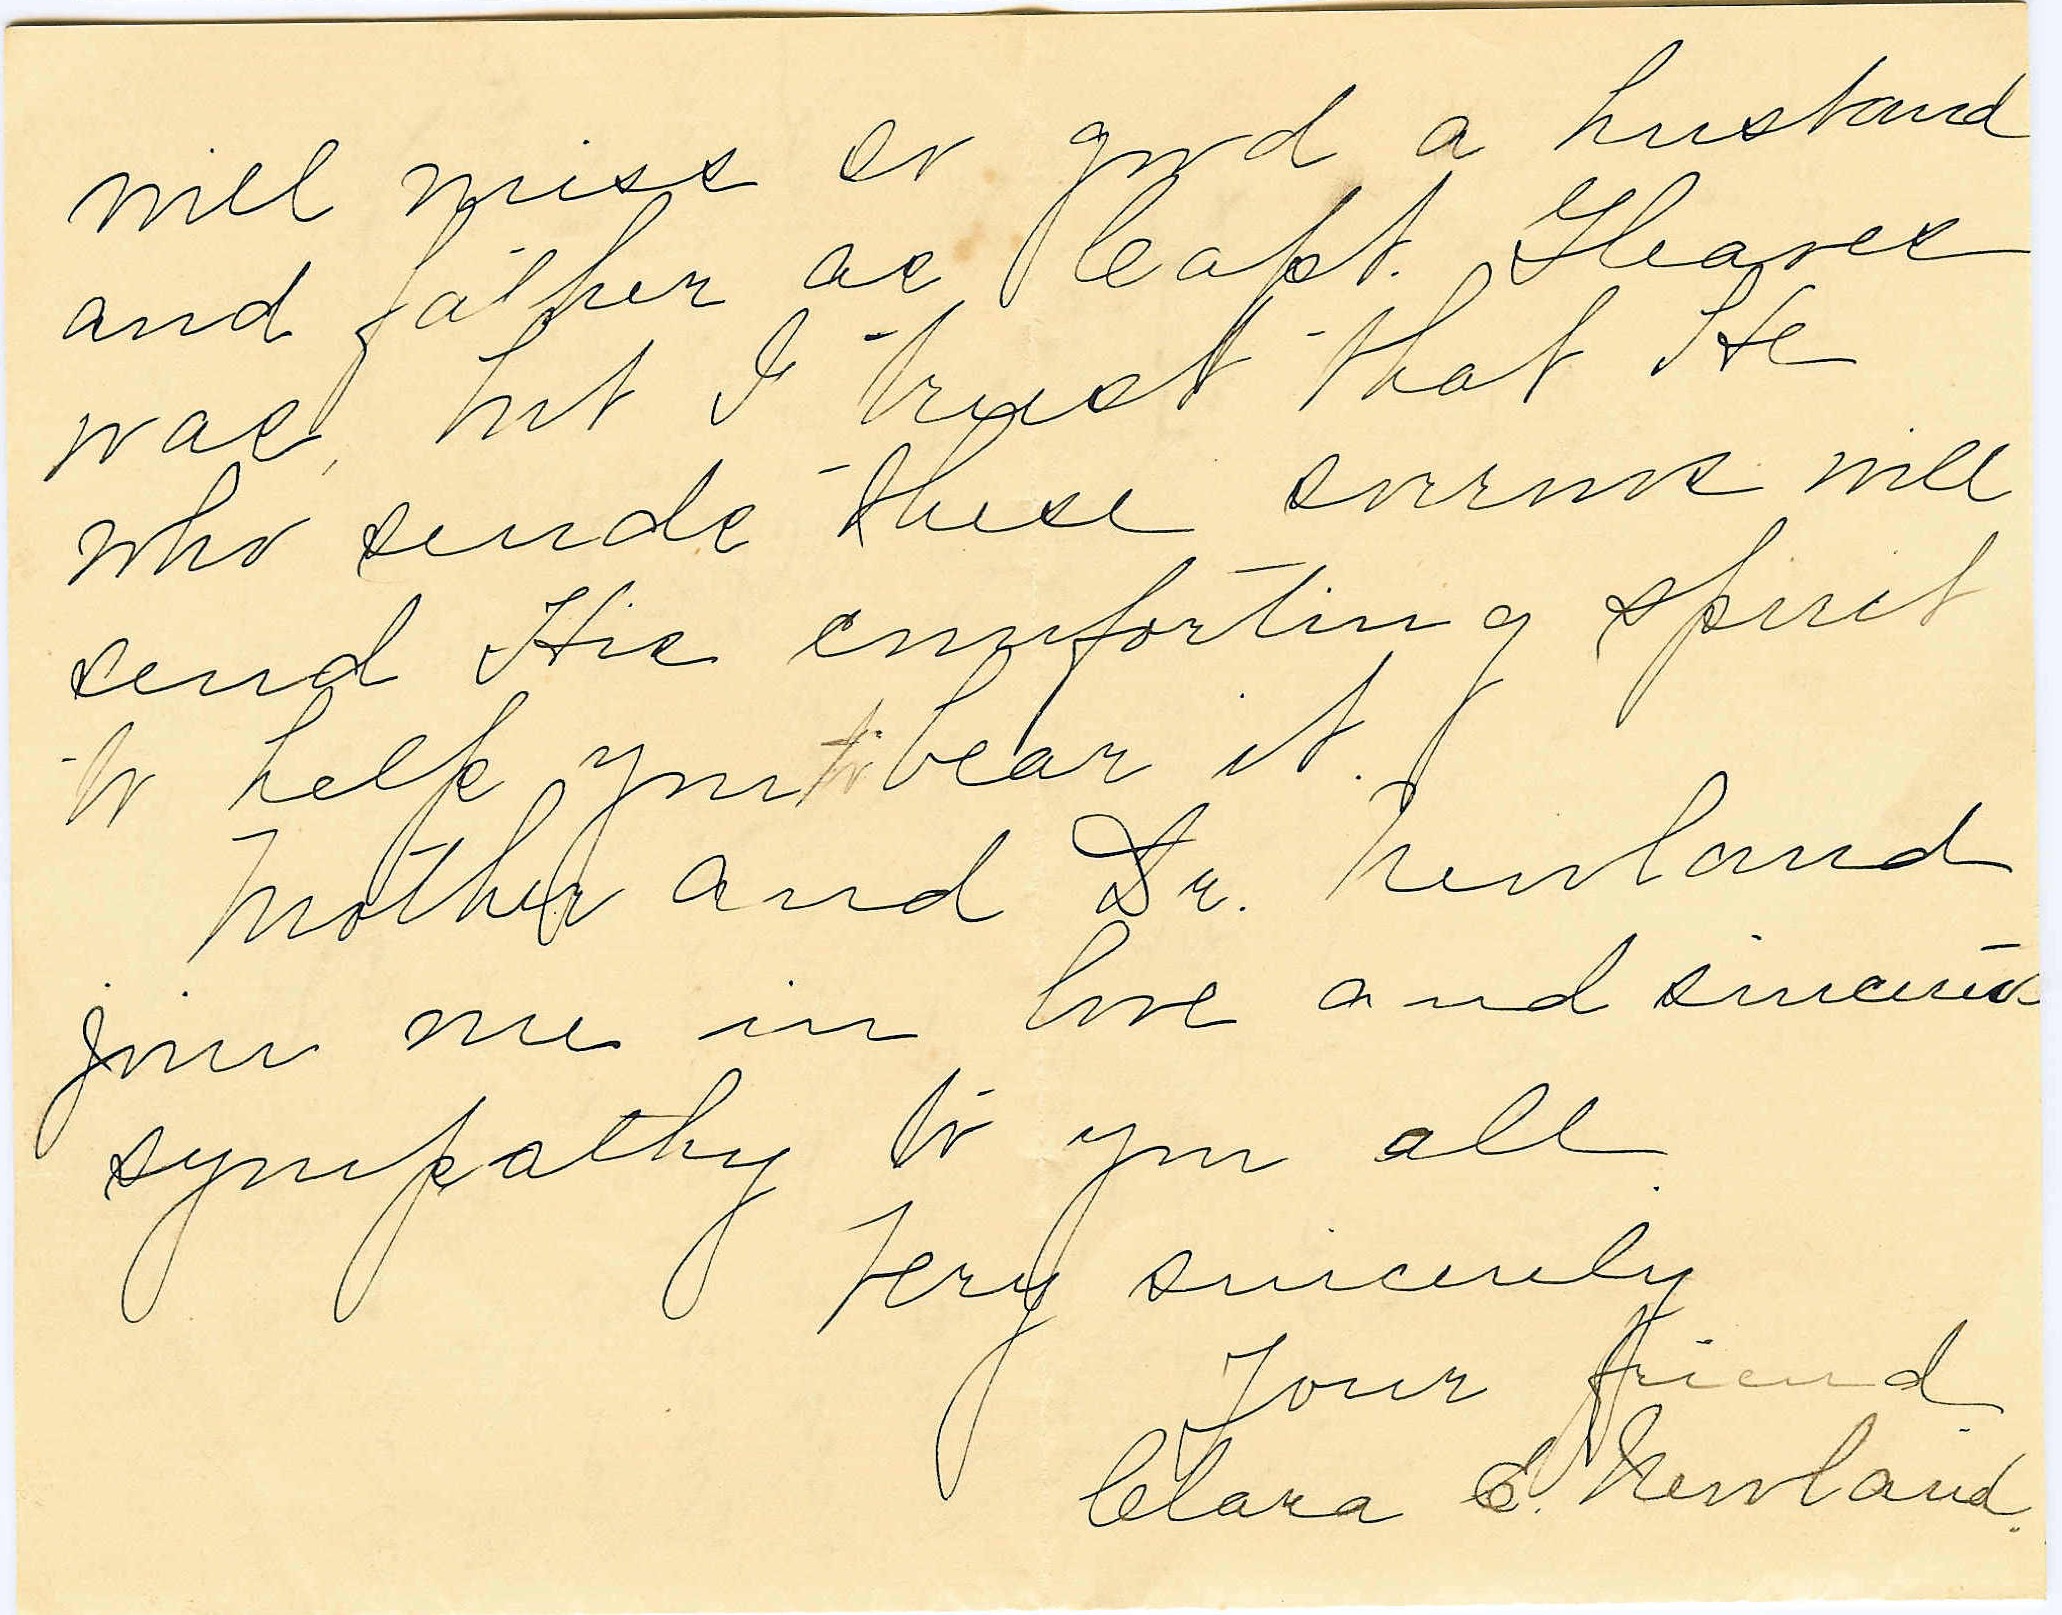 will miss so good a husband
and father as Capt. Gleaves
was, but I trust that He
who sends these sorrows will
send His comforting spirit
to help you to bear it.
Mother and Dr. Newland
join me in love and sincerest
sympathy to you all.
Very sincerely
Your friend
Clara E. Newland.